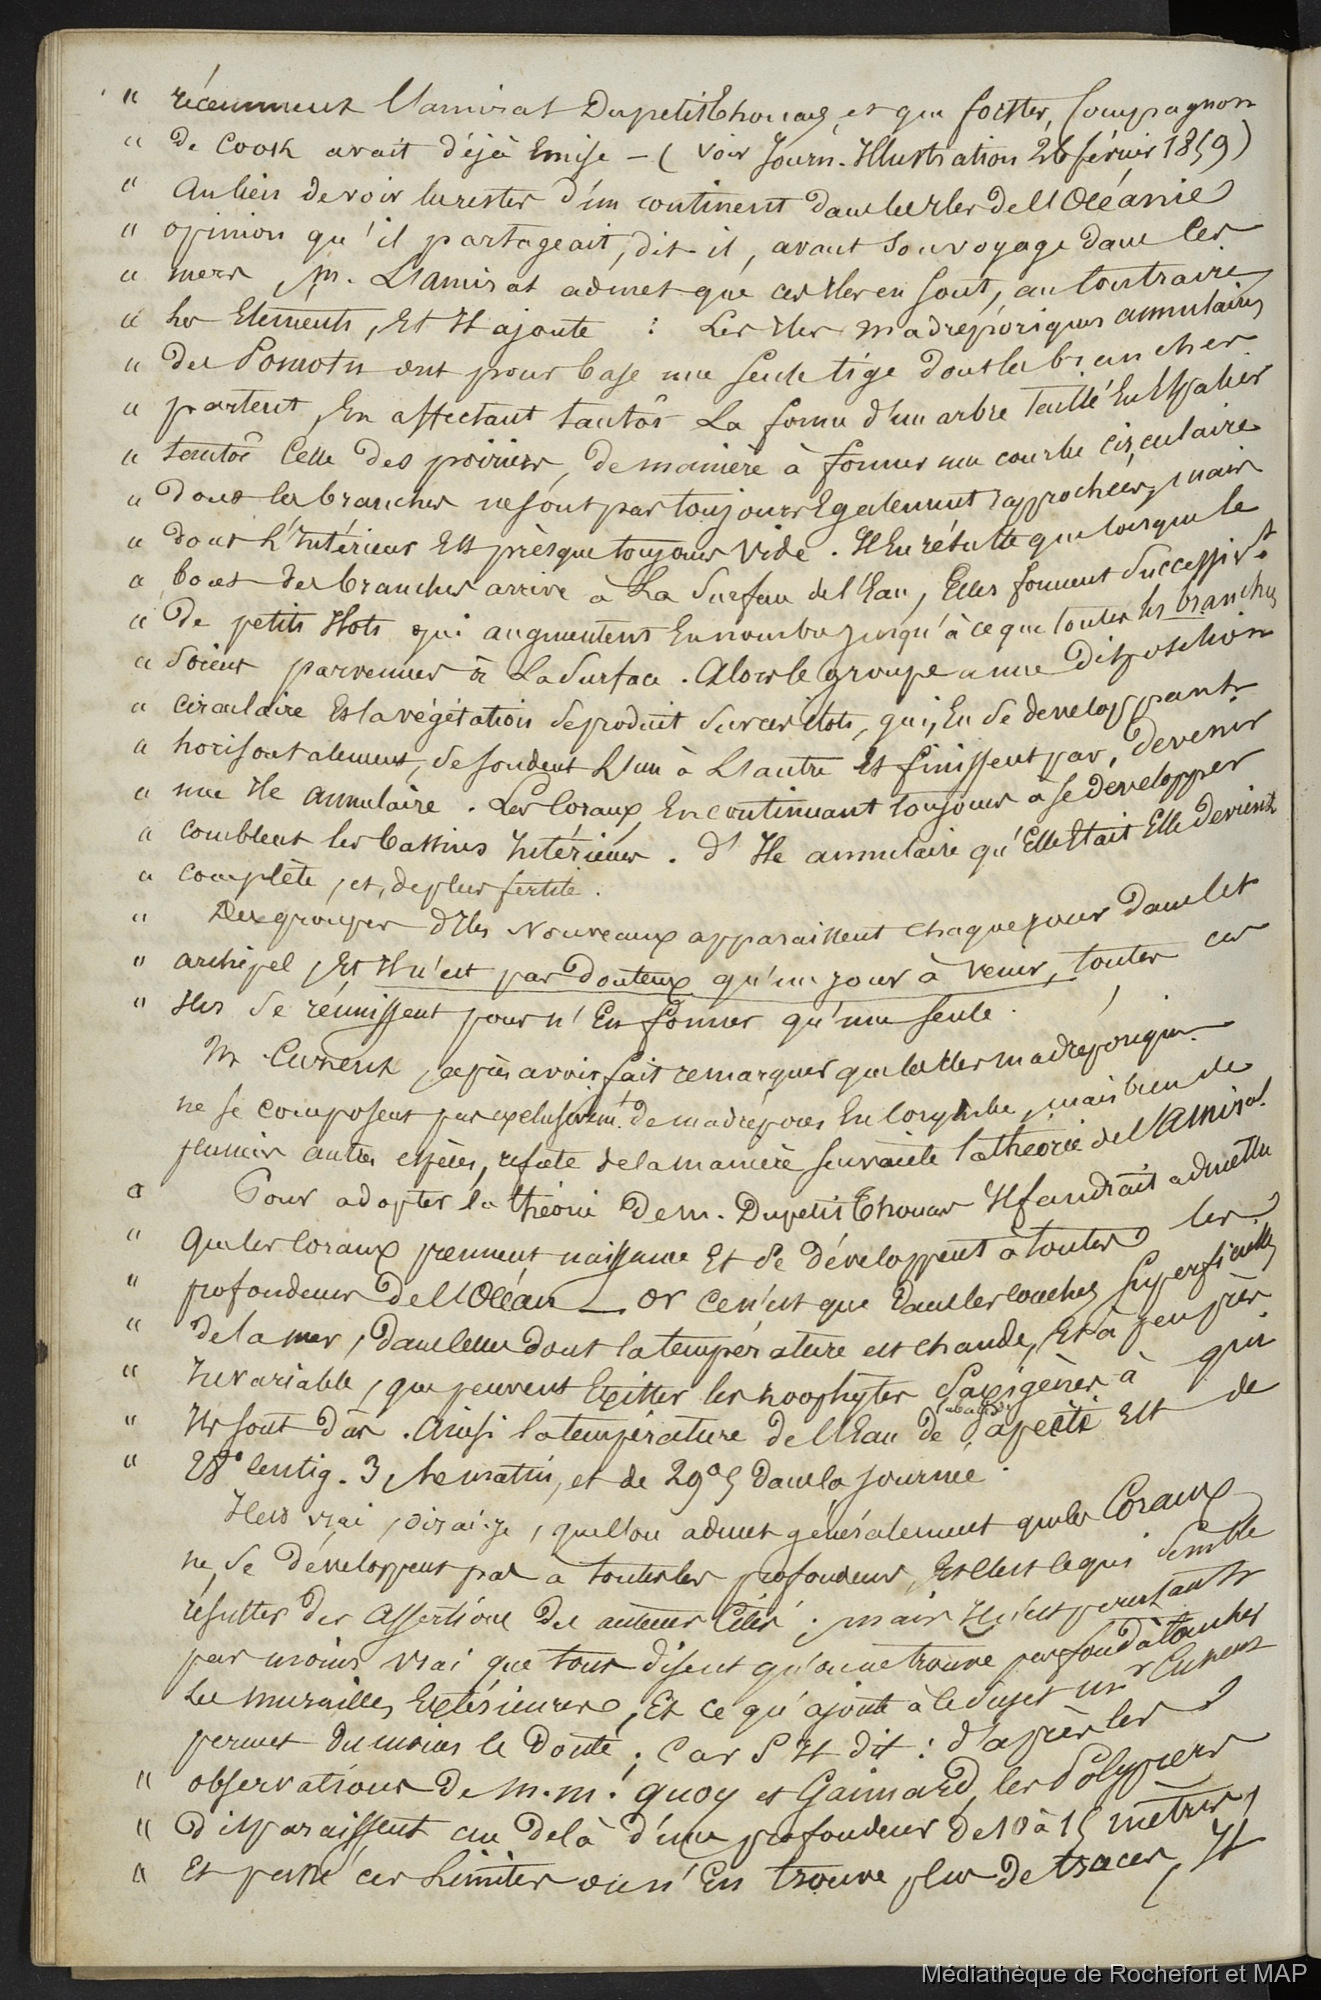 " récemment l'amiral Dupetit Thouars, et que forster, Compagnon
" de Cook avait déjà Emise – ( voir Journ. Illustration 26 février 1859)
" Au lieu de voir les restes d'un continent dans les Iles de l'Océanie
" opinion qu'il partageait, dit-il, avant son voyage dans les
" mers, M. L'amiral admet que ces Iles en sont, au Contraire
" les Eléments, Et Il ajoute : Les Iles madréporiques annulaires
" des Pomotu ont pour base une seule tige dont les branches
" partent, En affectant tantôt La forme d'un arbre taillé En Espalier
" tantôt Celle des poiriers, de manière à former une courbe circulaire
" dont les branches ne sont pas toujours Egalement rapprochées, mais
" dont l'Intérieur Est presque toujours vide. Il En résulte que lorsque le
" bout des branches arrive à La Surface de l'Eau, Elles forment successivt.
" de petits Ilots qui augmentent En nombre jusqu'à ce que toutes les branches
" soient parvenues à La Surface. Alors le groupe a une disposition
" circulaire Et la végétation se produit sur ces ilots, qui, En se développant
" horisontalement, se soudent L'un à L'autre Et finissent par devenir
" une Ile annulaire. Les Coraux, En continuant toujours à se développer
" comblent les bassins Intérieurs. d'Ile annulaire qu'Elle Etait Elle devient
" complète, et, de plus fertile.
" Des groupes d'Iles Nouveaux apparaissent chaque jour dans let
" archipel, Et Il n'est pas douteux qu'un jour à venir, toutes ces
" Iles se réunissent pour n'En former qu'une seule.
M. Cuzent, après avoir fait remarquer que les Iles madréporiques
ne se composent pas exclusivemt. de madrépores En Corymbe, mais bien de
plusieurs autres espèces, réfute de la manière suivante la théorie de l'Amiral.
" Pour adopter la théorie de M. Dupetit Thouars Il faudrait admettre
" Que les Coraux prennent naissance Et se développent à toutes les
" profondeurs de l'Océan – or ce n'est que dans les couches superficielles
" de la mer, dans celles dont la température est chaude, Et à peu près
" Invariable, que peuvent Exister les zoophytes Saxigènes à qui
" Ils sont dûs. Ainsi la température de l'Eau de Papeïti Est de
" 28° Centig. 3, le matin, et de 29°5 dans la journée.
Il est vrai, dirai-je, que l'on admet généralement que les Coraux
ne se développent pas à toutes les profondeurs, Et c'est ce qui semble
résulter des Assertions des auteurs Cités ; mais Il n'est pourtant
pas moins vrai que tous disent qu'on ne trouve pas fond à toucher
les murailles Extérieures, Et ce qu'ajoute à ce sujet Mr Cuzent
permet du moins le doute ; Car S'Il dit : d'après les
" observations de M.M. Quoy et Gaimard, les Polypiers
" disparaissent au delà d'une profondeur de 10 à 15 mètres,
" Et passé ces Limites on n'En trouve plus de traces, Il